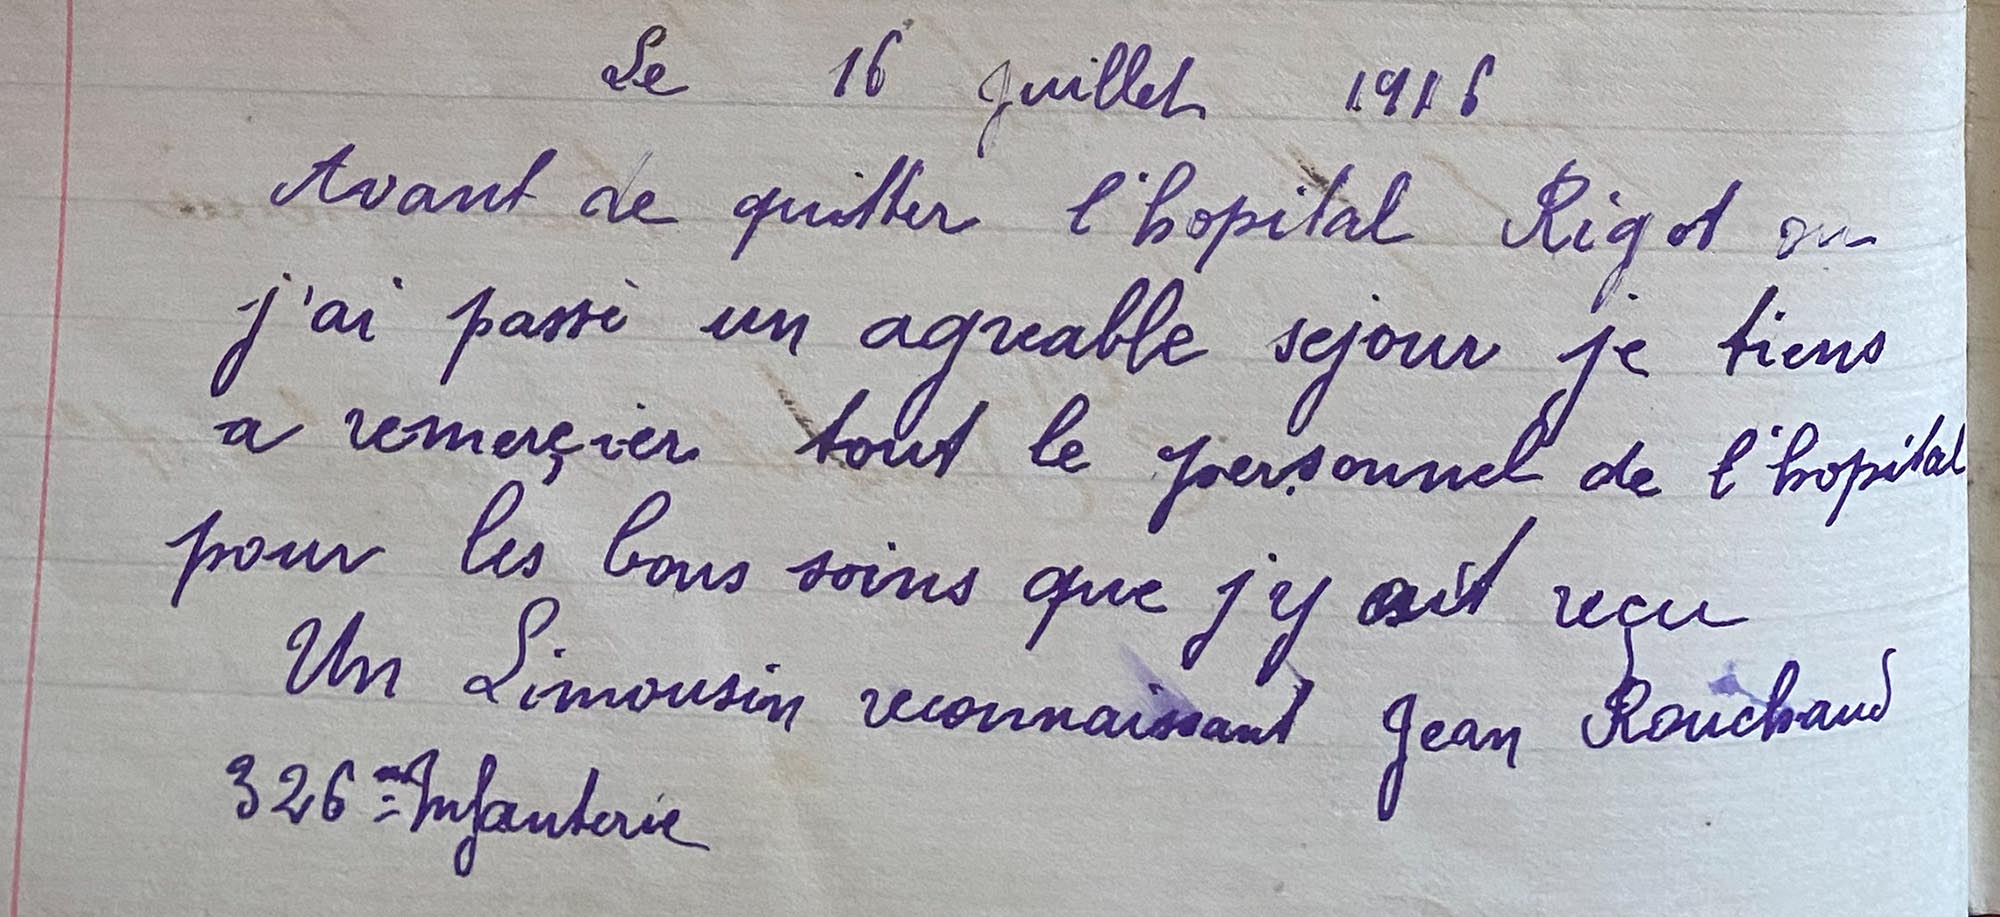 Le 16 Juillet 1916
Avant de quitter l'hopital Rigot ou
j'ai passé un agreable sejour je tiens
a remerçier tout le personnel de l'hopital
pour les bons soins que j'y ait reçu
Un Limousin reconnaissant Jean Rouchaud
326eme Infanterie